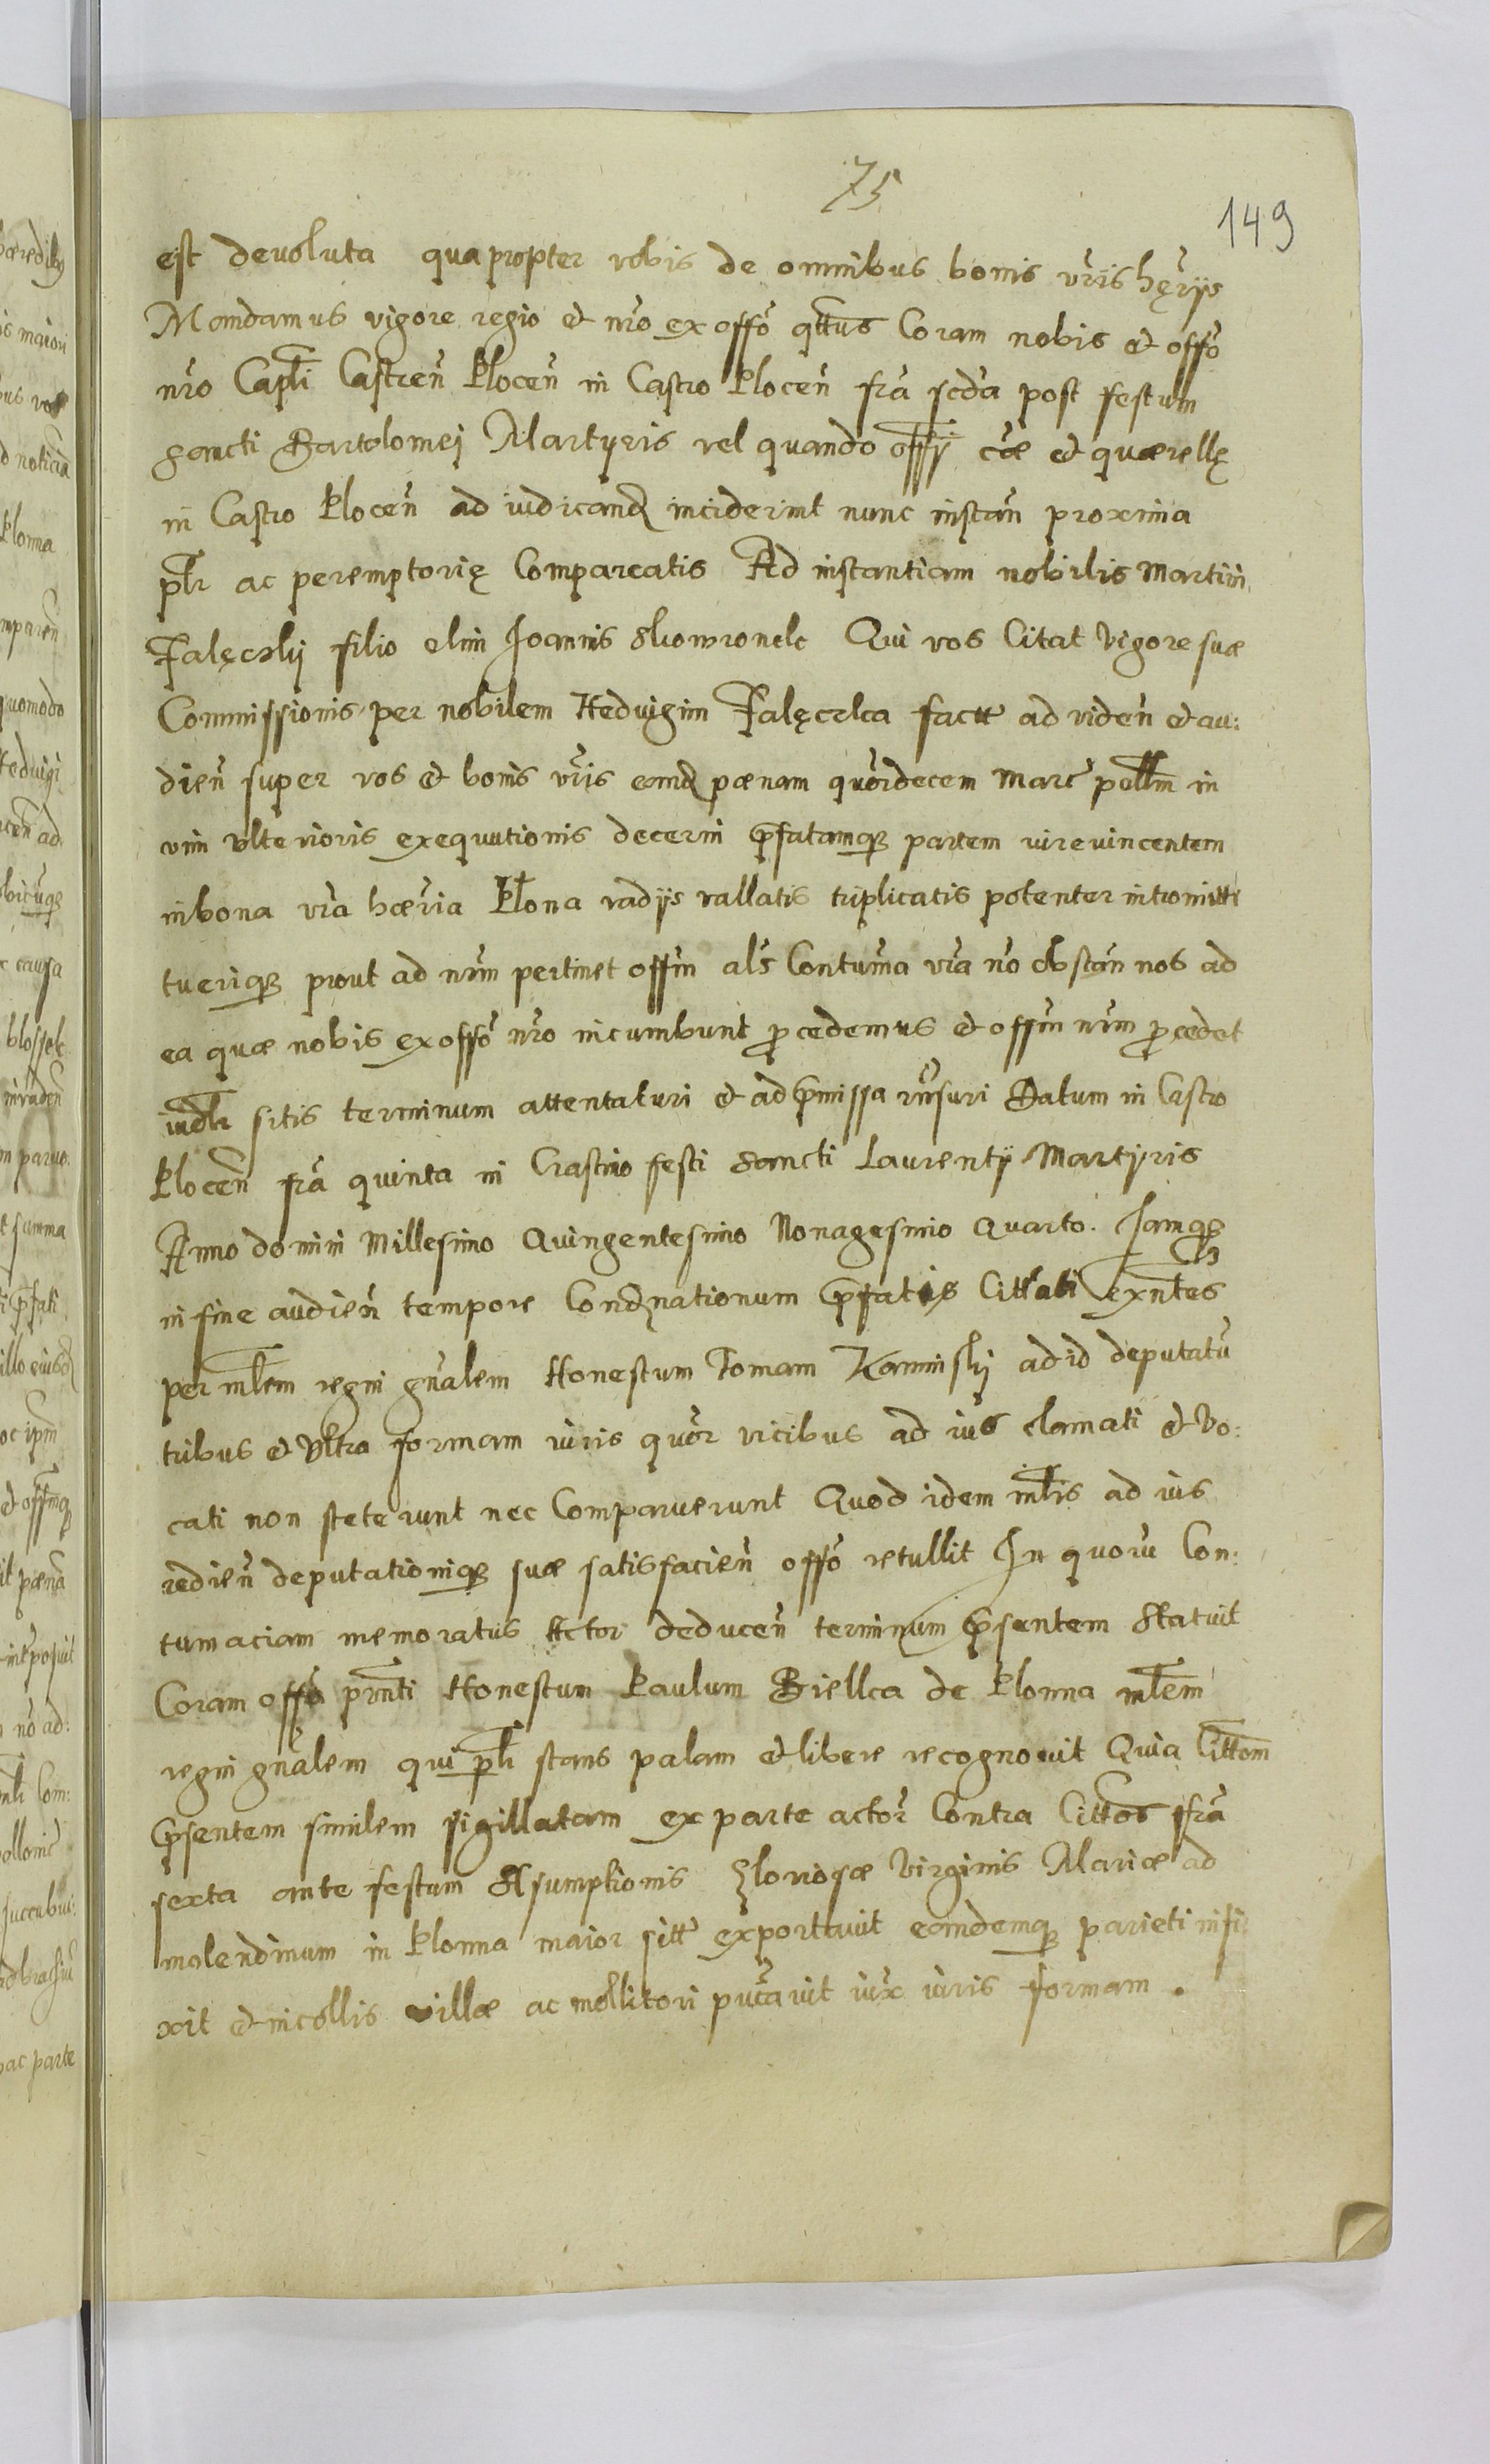 75
149
est devoluta quapropter vobis de omnibus bonis vr̃is hęr̃ijs
Mandamus vigore regio et nr̃o ex offõ qttũs Coram nobis et offõ
nr̃o Capłi Castreñ Płoceñ in Castro Płoceñ fr̃a scđa post festum
sancti Bartolomej Martyris vel quando offÿ cãe et quærellę
in Castro Płoceñ ad iudicanđ inciderint nunc instañ proxima
płr ac peremptorię Compareatis Ad instantiam nobilis Martini
Falęczkij filio olim Joannis Skowronek Qui vos Citat vigore suæ
Commissionis per nobilem Hedvigim Falęczka factt ad videñ et au:
dieñ super vos et bonis vr̃is eand pænam quõrdecem Marc̃ pollm̃ in
vim vlterioris exequutionis decerni p̃fatamq; partem iure vincentem
in bona vr̃a hær̃ia Płona vadijs vallatis triplicatis potenter intromitti
tueriq; prout ad nr̃m pertinet offm̃ als̃ Contum̃a vr̃a nõ obstañ nos ad
ea quæ nobis ex offõ nr̃o incumbunt procedemus et offm̃ nr̃m procedet
iudłr sitis terminum attentaturi et ad p̃missa rñsuri Datum in Castro
Płoceñ fr̃a quinta in Crastino festi Sancti Laurentij Martijris
Anno domini Millesimo Quingentesimo Nonagesimo Quarto. Jamq;
in fine audieñ tempore Condẽnationum p̃fatis Cittati exñtes
per młem regni gñalem Honestum Tomam Kaminskj ad id deputatũ
tribus et vltra formam iuris quõr vicibus ad ius clamati et vo:
cati non steterunt nec Comparuerunt Quod idem młis ad ius
redieñ deputationiq; suæ satisfacieñ offõ retullit In quorũ Con:
tumaciam memoratus Actor deduceñ terminum p̃sentem Statuit
Coram offõ prñti Honestum Paulum Biellca de Płonna młem
regni gñalem qui płr stans palam et libere recognovit Quia Cittom̃
p̃sentem similem sigillatam ex parte actor̃ Contra Cittos̃ fr̃a
sexta ante festum Assumptionis Gloriosæ Virginis Mariæ ad
molendinum in Płonna maior sitt exportavit eandemq; parieti infi:
xit et incollis villæ ac mollitori puc̃avit iux̃ iuris formam.